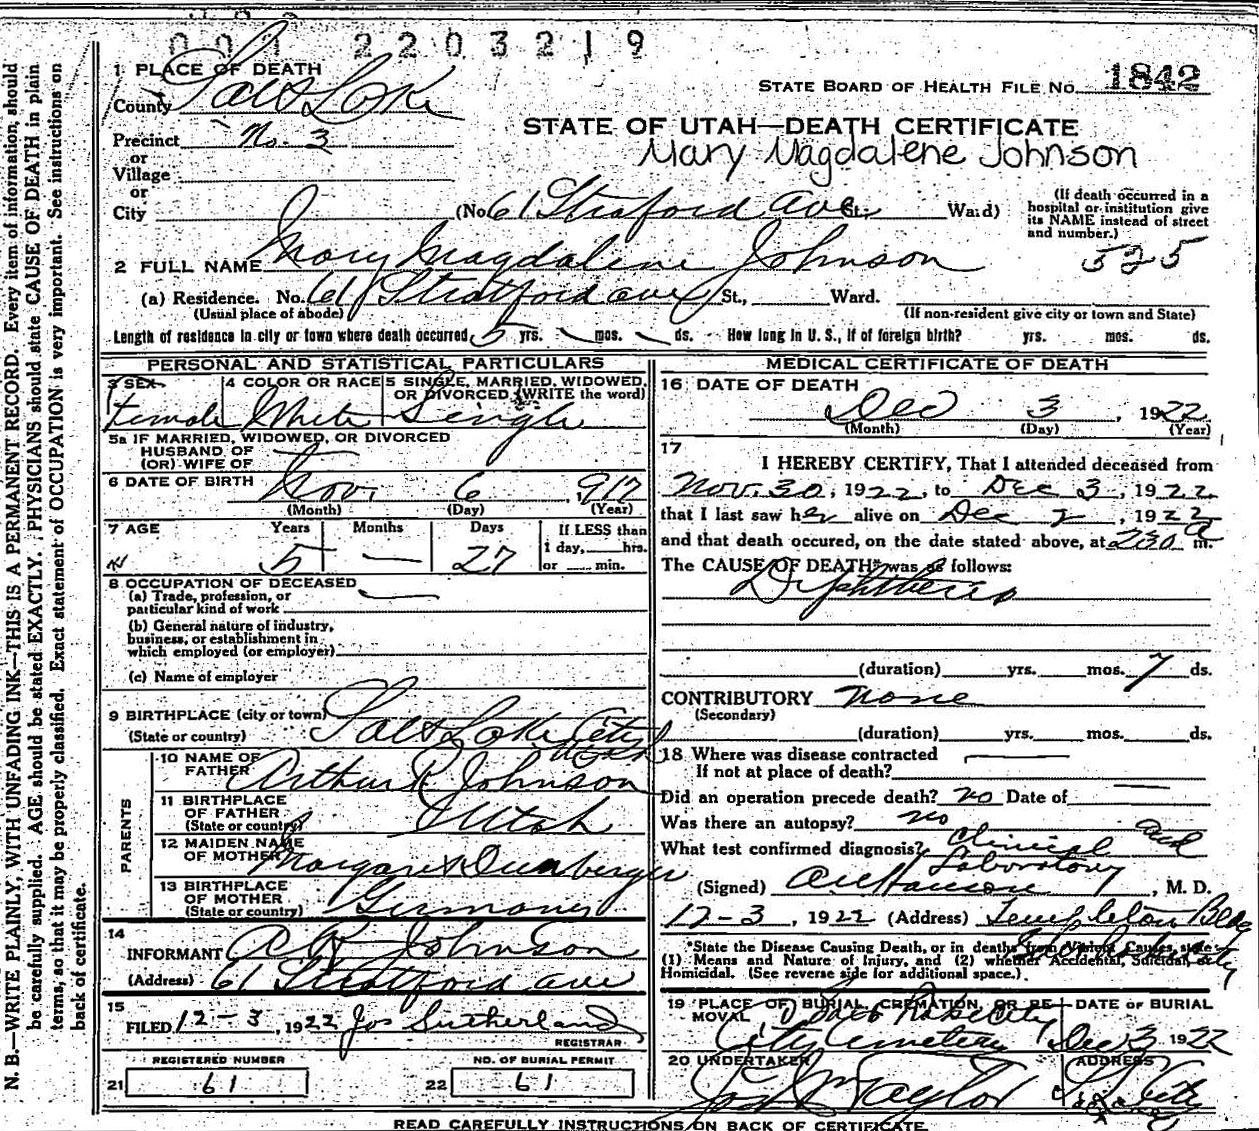 001 2203219
1 PLACE OF DEATH
STATE BOARD OF HEALTH FILE No. 1842
County Salt Lake
STATE OF UTAH—DEATH CERTIFICATE
Precinct No. 3
Mary Magdalene Johnson
or
Village
or
City (No 61 Straford Ave St. Ward)
(If death occurred in a
hospital or institution give
its NAME instead of street
and number.)
525
2 FULL NAME Mary Magdalene Johnson
(a) Residence. No. 61 Stratford ave St., Ward.
(Usual place of abode) (If non-resident give city or town and State)
Length of residence in city or town where death occurred 5 yrs. — mos. — ds. How long in U. S., if of foreign birth? yrs. mos. ds.
PERSONAL AND STATISTICAL PARTICULARS
3 SEX 4 COLOR OR RACE 5 SINGLE, MARRIED, WIDOWED,
OR DIVORCED (WRITE the word)
Female White Single
5a IF MARRIED, WIDOWED, OR DIVORCED
HUSBAND OF
(OR) WIFE OF —
6 DATE OF BIRTH Nov. 6, 917
(Month) (Day) (Year)
7 AGE Years Months Days If LESS than
1 day, hrs.
5 — 27 or min.
8 OCCUPATION OF DECEASED
(a) Trade, profession, or
particular kind of work —
(b) General nature of industry,
business, or establishment in
which employed (or employer)
(c) Name of employer
9 BIRTHPLACE (city or town) Salt Lake City
(State or country) Utah
PARENTS
10 NAME OF
FATHER Arthur R Johnson
11 BIRTHPLACE
OF FATHER
(State or country) Utah
12 MAIDEN NAME
OF MOTHER Margaret Dumberger
13 BIRTHPLACE
OF MOTHER
(State or country) Germany
14
INFORMANT A R Johnson
(Address) 61 Stratford ave
15
FILED 12-3, 1922 Jos Sutherland
REGISTRAR
REGISTERED NUMBER NO. OF BURIAL PERMIT
21 61 22 61
MEDICAL CERTIFICATE OF DEATH
16 DATE OF DEATH
Dec 3, 1922
(Month) (Day) (Year)
17
I HEREBY CERTIFY, That I attended deceased from
Nov. 30, 1922, to Dec 3, 1922.
that I last saw her alive on Dec 2, 1922
and that death occured, on the date stated above, at 230 a m.
The CAUSE OF DEATH* was as follows:
Diphtheria
(duration) yrs. mos. 7 ds.
CONTRIBUTORY none
(Secondary)
(duration) yrs. mos. ds.
18 Where was disease contracted
If not at place of death? —
Did an operation precede death? no Date of —
Was there an autopsy? no
What test confirmed diagnosis? Clinical and
Laboratory
(Signed) , M. D.
12-3, 1922 (Address) Templeton Bldg
*State the Disease Causing Death, or in deaths from Violent Causes, state
(1) Means and Nature of Injury, and (2) whether Accidental, Suicidal, or
Homicidal. (See reverse side for additional space.)
19 PLACE OF BURIAL, CREMATION, OR RE-
MOVAL
DATE OF BURIAL
Salt Lake City
City Cemetery Dec 3 1922
20 UNDERTAKER ADDRESS
Taylor
READ CAREFULLY INSTRUCTIONS ON BACK OF CERTIFICATE
N. B.—WRITE PLAINLY, WITH UNFADING INK—THIS IS A PERMANENT RECORD. Every item of information, should
be carefully supplied. AGE should be stated EXACTLY. PHYSICIANS should state CAUSE OF DEATH in plain
terms, so that it may be properly classified. Exact statement of OCCUPATION is very important. See instructions on
back of certificate.